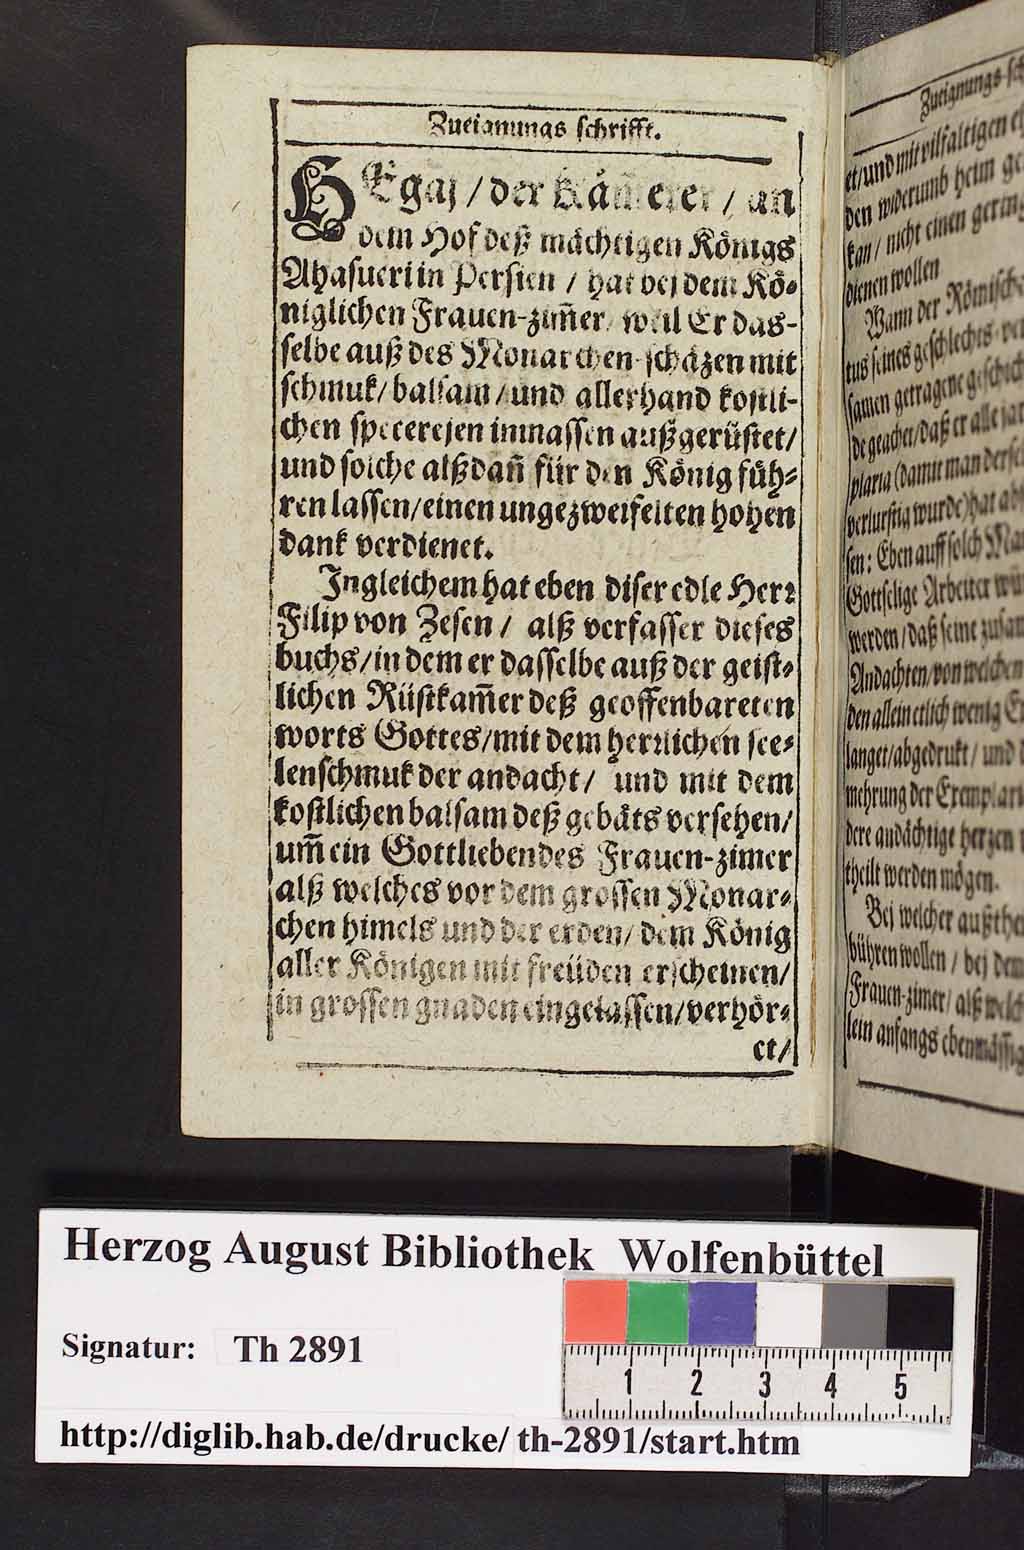 Zueignungs schrifft.
HEgaj / der Käm̃erer / an
dem Hof deß mächtigen Königs
Ahasueri in Persien / hat bej dem Kö⸗
niglichen Frauen-zim̃er / weil Er das-
selbe auß des Monarchen schäzen mit
schmuk / balsam / und allerhand kostli-
chen specerejen inmassen außgerüstet /
und solche alßdañ für den König füh⸗
ren lassen / einen ungezweifelten hohen
dank verdienet.
Ingleichem hat eben diser edle Herꝛ
Filip von Zesen / alß verfasser dieses
buchs / in dem er dasselbe auß der geist⸗
lichen Rüstkam̃er deß geoffenbareten
worts Gottes / mit dem herꝛlichen see⸗
lenschmuk der andacht / und mit dem
kostlichen balsam deß gebäts versehen /
um̃ ein Gottliebendes Frauen-zimer
alß welches vor dem grossen Monar⸗
chen himels und der erden / dem König
aller Königen mit freüden erscheinen /
in grossen gnaden eingelassen / verhör⸗
et /
Zueignungs sch
et / und mit vilfältigen
den widerumb heim
kan / nicht einen gering
dienen wollen
Wann der Römische
tus seines geschlechts
samen getragene geschich
de geachtet / daß er alle
plaria (damit man
verlurstig wurde) hat
sen: Eben auff solch
Gottselige Arbeiter
werden / daß seine
Andachten / von welchen
den allein etlich wenig
langet / abgedrukt / und
mehrung der Exemplari
dere andächtige herzen
theilt werden mögen.
Bej welcher außthe
bühren wollen / bej dem
Frauen-zimer / alß welch
lein anfangs ebenmässig
Herzog August Bibliothek Wolfenbüttel
Signatur: Th 2891
1 2 3 4 5
http://diglib.hab.de/drucke/ th-2891/start.htm